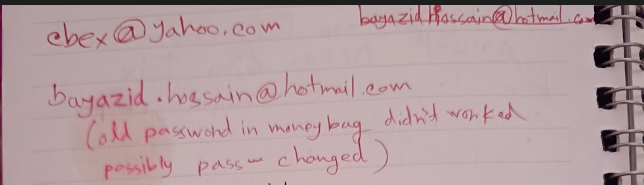 bayazid.hossain@hotmail.com
ebex@yahoo.com
bayazid.hossain@hotmail.com
(old password in moneybag didn't worked
possibly pass changed)